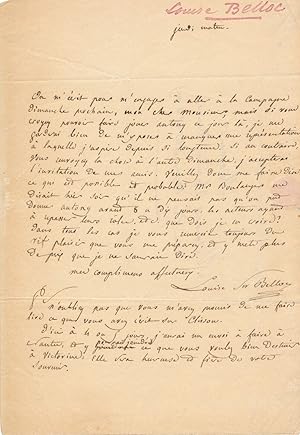 Louise Belloc
jeudi matin.
On m'écrit pour m'engager à aller à la Campagne
Dimanche prochain, mon cher Monsieur, mais si vous
croyez pouvoir faire jouer antony ce jour là, je me
garderai bien de m'exposer à manquer une représentation
à laquelle j'aspire depuis si longtems. Si au contraire
vous renvoyez la chose à l'autre Dimanche, j'accepterai
l'invitation de mes amis. Veuillez donc me faire dire
ce qui est possible et probable Mr Boulanger me
disait hier soir qu'il ne pensait pas qu'on pût
donner antony avant 8 ou dix jours, les acteurs ayant
à repasser leurs rôles, etc. que dois-je en croire?
Dans tous les cas je vous remercie toujours du
vif plaisir que vous me préparez, et y mets plus
de prix que je ne saurais dire.
mes complimens affectueux
Louise Sw Belloc
n'oubliez pas que vous m'avez promis de me faire
lire ce que vous avez écrit sur Clisson.
D'ici à 4 ou 5 jours, j'aurai un envoi à faire à
Nantes, et y ce que vous voulez bien Destiner
à Victorine. Elle sera heureuse et fière de votre
Souvenir.